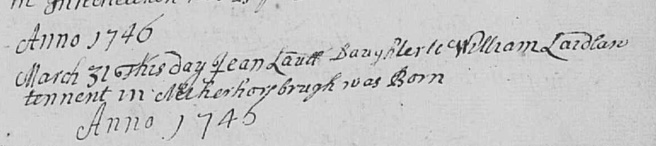 Anno 1746
March 31 This day Jean Laidl Daughter to William Laidlaw
tennent in Netherhorsbrugh was Born
Anno 1745